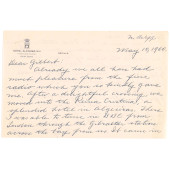 May 19, 1955.
Dear Gilbert:
Already we all have had
much pleasure from the fine
radio which you so kindly gave
me. After a delightful crossing we
moved into the Reina Cristina, a
splendid hotel in Algeciras. There
I was able to tune in BBC from
London through the Gibraltar, when
across the bay from us. It came in